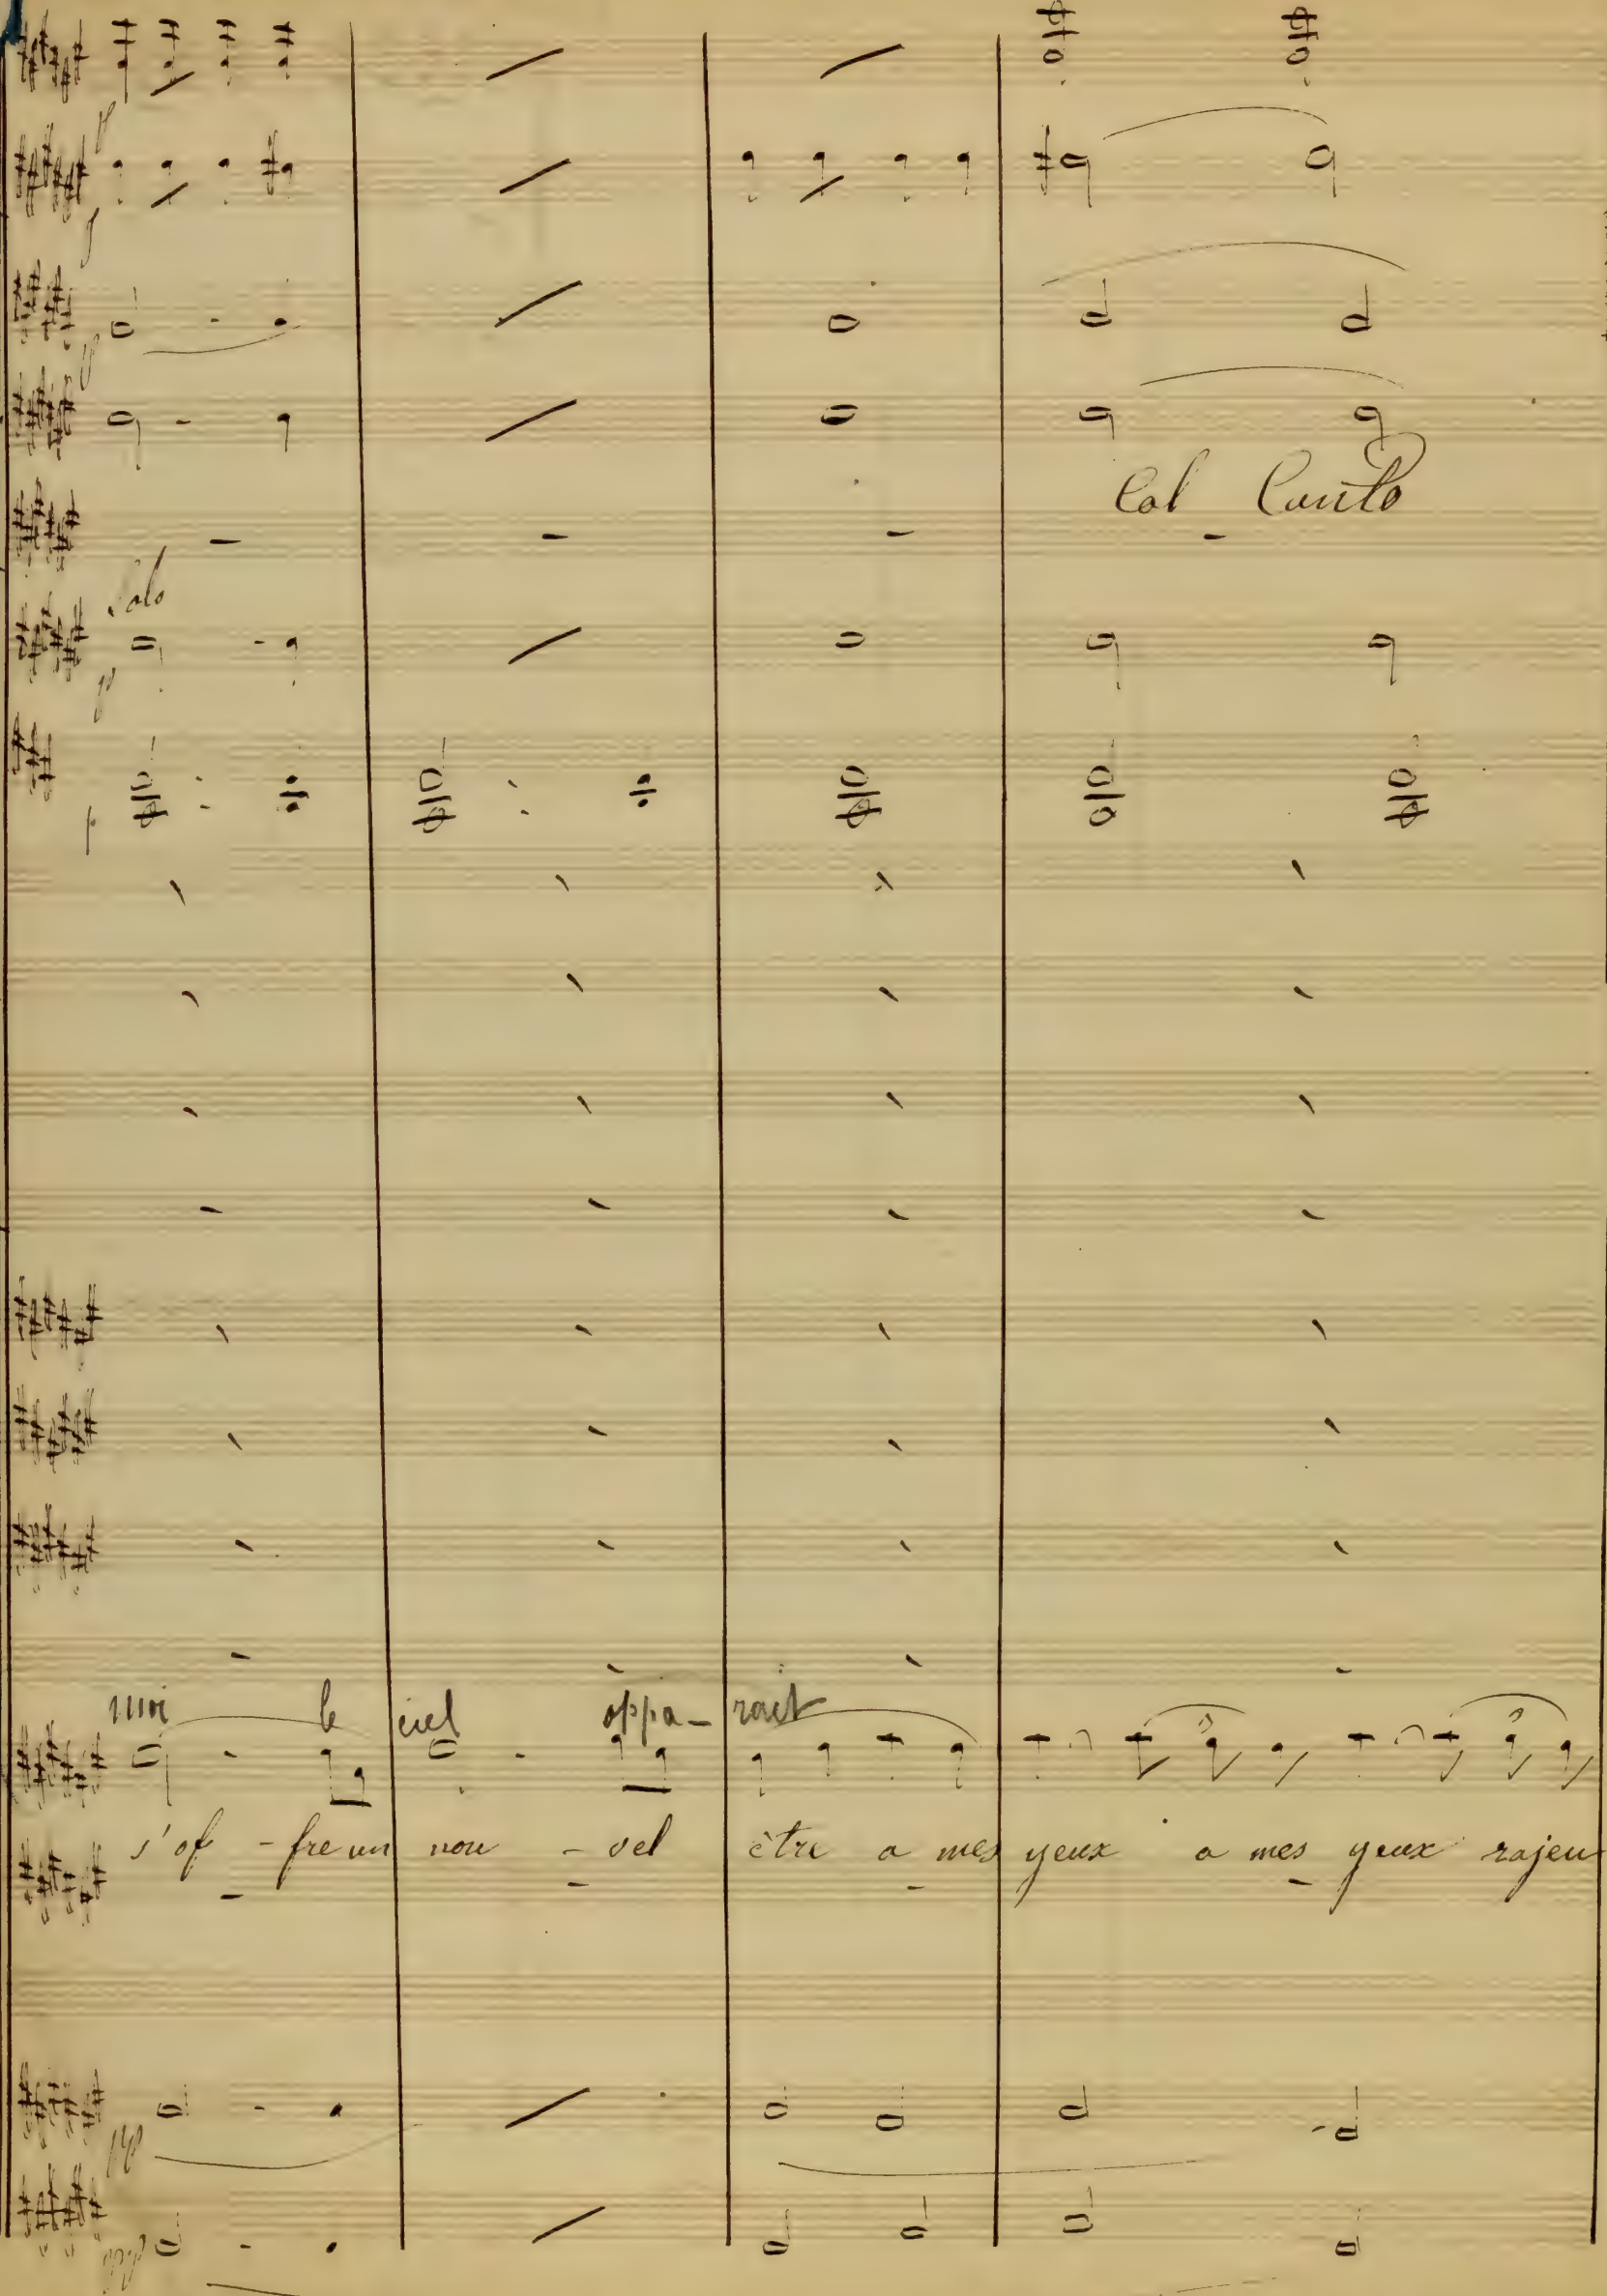 p
Col Canto
Solo
p
p
moi le ciel appa- rait
s'of - fre un nou - vel être a mes yeux a mes yeux rajeu
pp
pp